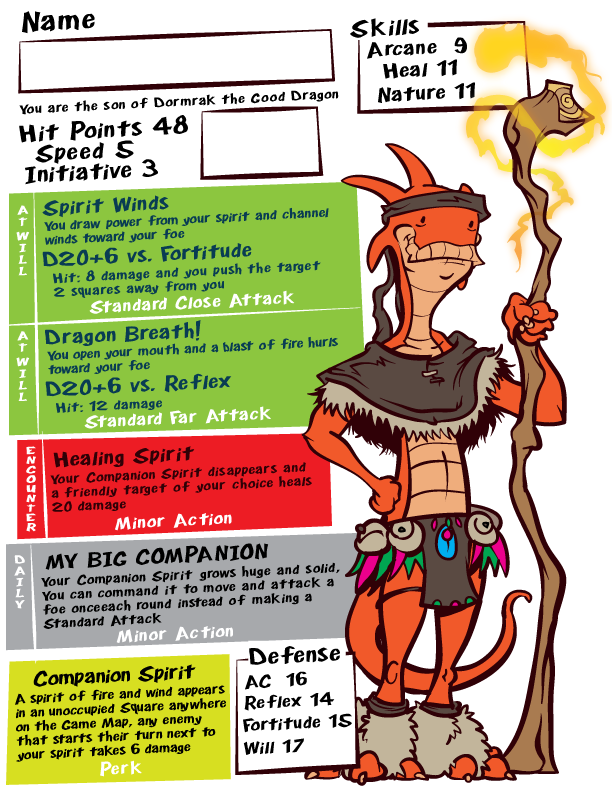 Name
Skills
Arcane 9
Heal 11
Nature 11
You are the son of Dormrak the Good Dragon
Hit Points 48
Speed 5
Initiative 3
AT WILL
Spirit Winds
You draw power from your spirit and channel
winds toward your foe
D20+6 vs. Fortitude
Hit: 8 damage and you push the target
2 squares away from you
Standard Close Attack
AT WILL
Dragon Breath!
You open your mouth and a blast of fire hurls
toward your foe
D20+6 vs. Reflex
Hit: 12 damage
Standard Far Attack
ENCOUNTER
Healing Spirit
Your Companion Spirit disappears and
a friendly target of your choice heals
20 damage
Minor Action
DAILY
MY BIG COMPANION
Your Companion Spirit grows huge and solid,
You can command it to move and attack a
foe onceeach round instead of making a
Standard Attack
Minor Action
Companion Spirit
A spirit of fire and wind appears
in an unoccupied Square anywhere
on the Game Map, any enemy
that starts their turn next to
your spirit takes 6 damage
Perk
Defense
AC 16
Reflex 14
Fortitude 15
Will 17